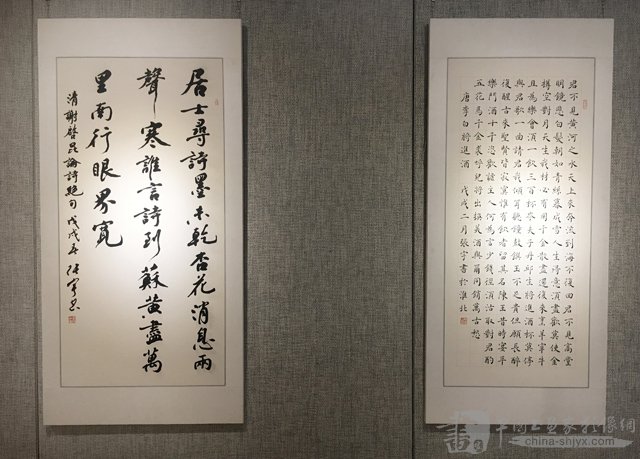 居士尋詩墨未乾杏花消息雨
聲寒誰言詩到蘇黃盡萬
里南行眼界寬
清謝啓昆論詩絕句 戊戌春 張宇書
君不見黃河之水天上來奔流到海不復回君不見高堂
明鏡悲白髮朝如青絲暮成雪人生得意須盡歡莫使金
樽空對月天生我材必有用千金散盡還復來烹羊宰牛
且為樂會須一飲三百杯岑夫子丹邱生將進酒杯莫停
與君歌一曲請君為我傾耳聽鐘鼓饌玉不足貴但願長醉
復醒古來聖賢皆寂寞惟有飲者留其名陳王昔時宴平
樂斗酒十千恣歡謔主人何為言少錢徑須沽取對君酌
五花馬千金裘呼兒將出換美酒與爾同銷萬古愁
唐李白將進酒 戊戌二月張宇書於淮北
中國書畫家影像網
china-shjyx.com